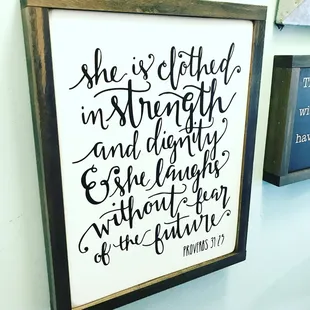 she is clothed
in strength
and dignity
& she laughs
without fear
of the future
PROVERBS 31:25